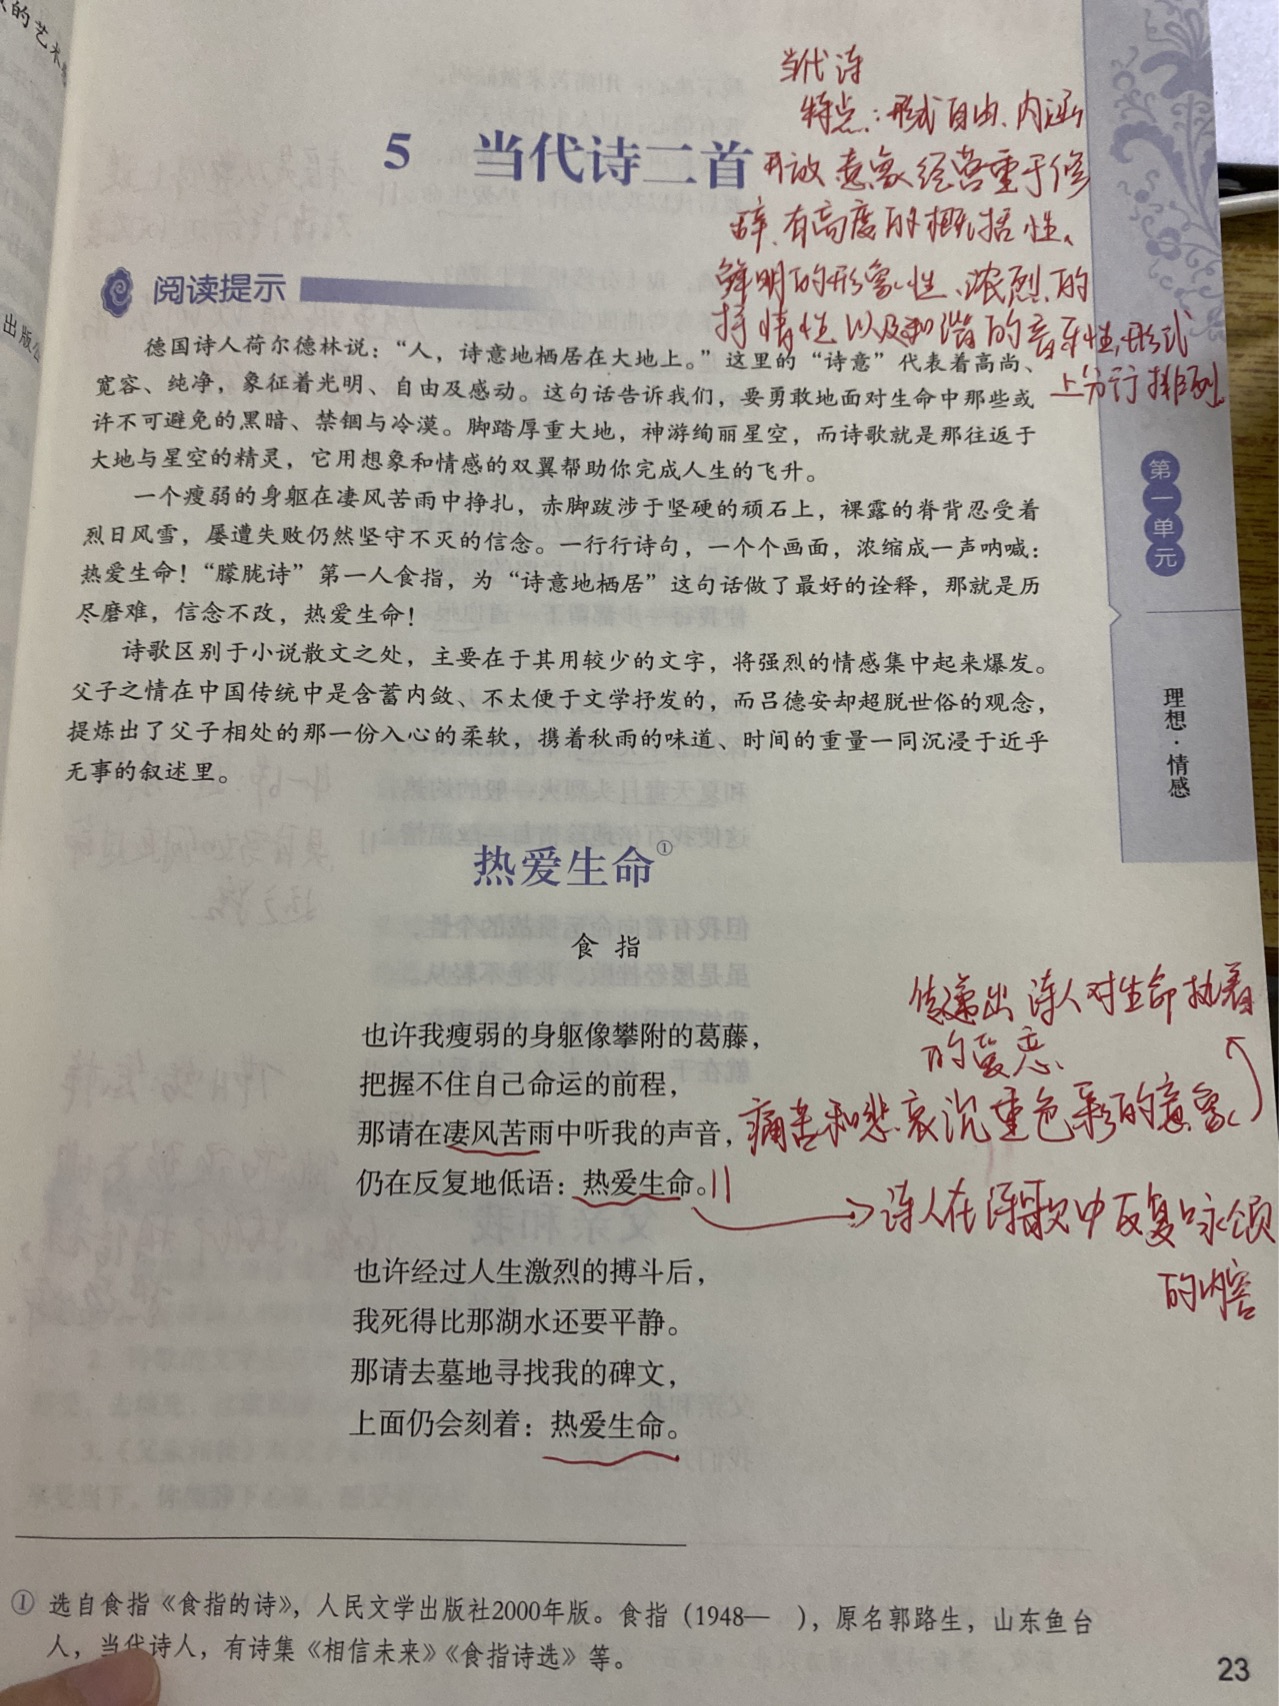 的艺术
出版
当代诗
特点:形式自由、内涵
5 当代诗二首
开放 意象经营重于修
辞、有高度的概括性、
鲜明的形象性、浓烈的
抒情性以及和谐的音乐性,形式
上分行排列。
阅读提示
德国诗人荷尔德林说:“人,诗意地栖居在大地上。”这里的“诗意”代表着高尚、
宽容、纯净,象征着光明、自由及感动。这句话告诉我们,要勇敢地面对生命中那些或
许不可避免的黑暗、禁锢与冷漠。脚踏厚重大地,神游绚丽星空,而诗歌就是那往返于
大地与星空的精灵,它用想象和情感的双翼帮助你完成人生的飞升。
一个瘦弱的身躯在凄风苦雨中挣扎,赤脚跋涉于坚硬的顽石上,裸露的脊背忍受着
烈日风雪,屡遭失败仍然坚守不灭的信念。一行行诗句,一个个画面,浓缩成一声呐喊:
热爱生命!“朦胧诗”第一人食指,为“诗意地栖居”这句话做了最好的诠释,那就是历
尽磨难,信念不改,热爱生命!
诗歌区别于小说散文之处,主要在于其用较少的文字,将强烈的情感集中起来爆发。
父子之情在中国传统中是含蓄内敛、不太便于文学抒发的,而吕德安却超脱世俗的观念,
提炼出了父子相处的那一份入心的柔软,携着秋雨的味道、时间的重量一同沉浸于近乎
无事的叙述里。
第一单元
理想·情感
热爱生命①
食 指
也许我瘦弱的身躯像攀附的葛藤,
把握不住自己命运的前程,
那请在凄风苦雨中听我的声音,
仍在反复地低语:热爱生命。
传递出诗人对生命执着
的爱恋、
痛苦和悲哀沉重色彩的意象
诗人在诗歌中反复咏颂
的内容
也许经过人生激烈的搏斗后,
我死得比那湖水还要平静。
那请去墓地寻找我的碑文,
上面仍会刻着:热爱生命。
① 选自食指《食指的诗》,人民文学出版社2000年版。食指(1948— ),原名郭路生,山东鱼台
人,当代诗人,有诗集《相信未来》《食指诗选》等。
23